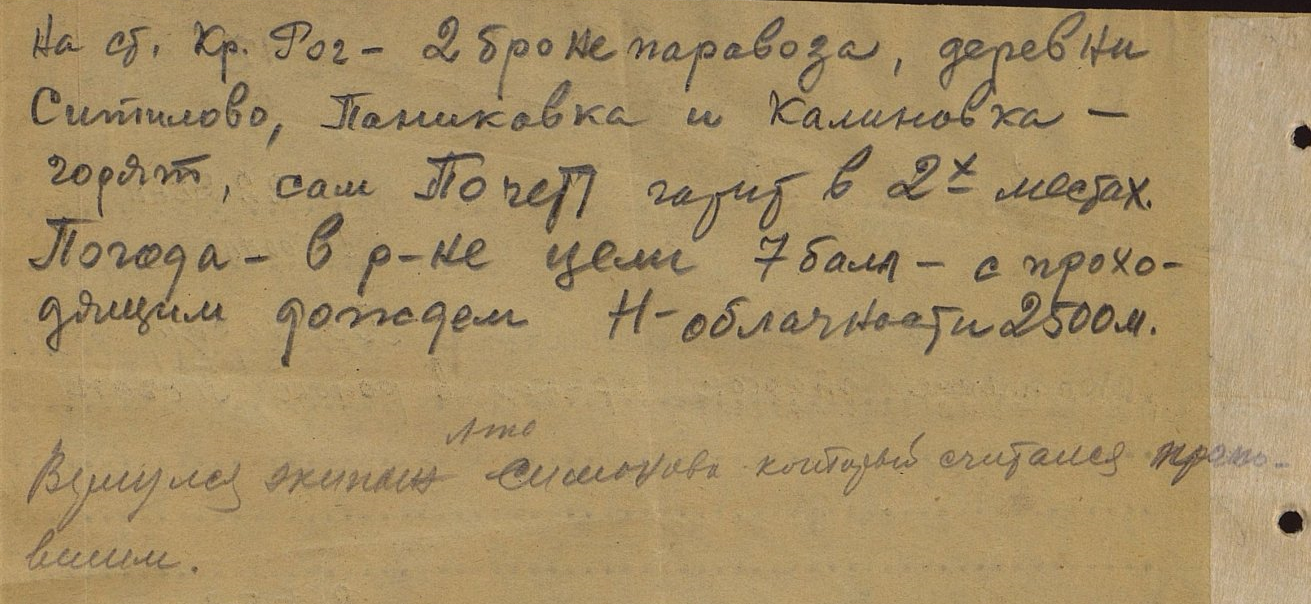 На ст. Кр. Рог - 2 бронепаровоза, деревни
Ситилово, Паниковка и Калиновка -
горят, сам Почеп горит в 2х местах.
Погода - в р-не цели 7 балл - с прохо-
дящим дождем Н-облачности 2500 м.
л-та
Вернулся экипаж Симонова который считался пропа-
вшим.